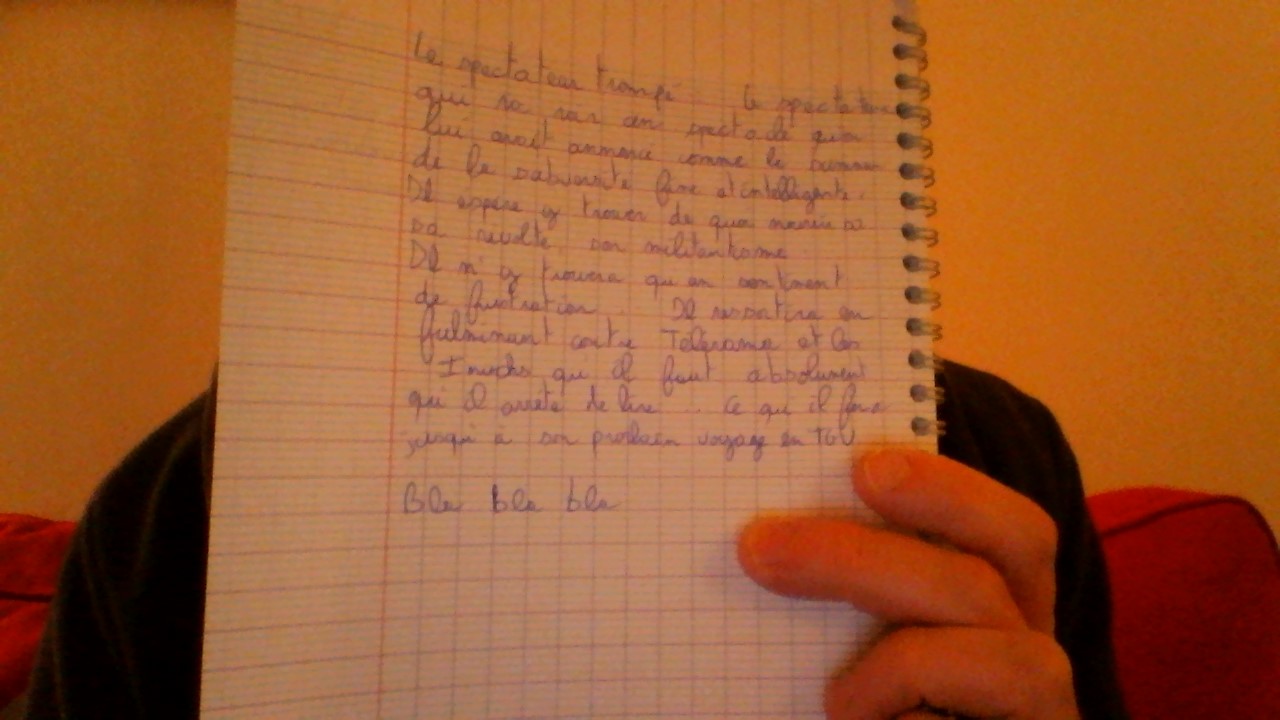 Le spectateur trompé. Le spectateur
qui va voir un spectacle qu'on
lui avait annoncé comme le summum
de la subversité fine et intelligente.
Il espère y trouver de quoi nourrir
sa révolte, son militantisme.
Il n'y trouvera qu'un sentiment
de frustration. Il ressortira en
fulminant contre Télérama et les
Inrocks qu'il faut absolument
qu'il arrête de lire... Ce qu'il fera
jusqu'à son prochain voyage en TGV
Bla bla bla